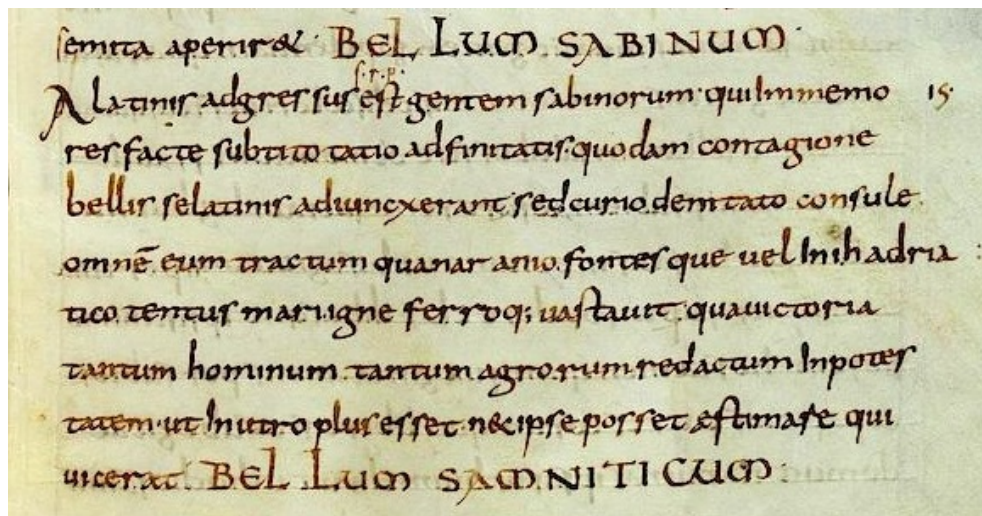 semita aperir& · BELLUM SABINUM ·
s.r.p.
A latinis adgressus est gentem sabinorum · qui Immemo 15.
res facte subtito tatio adfinitatis · quodam contagione
bellis se latinis adiuncxerant sed curio dentato consule
omnē eum tractum qua nar anio. fontesque uel In ih adria
tico tentus mari igne ferroq; uastauit · qua uictoria
tantum hominum tantum agrorum redactum In potes
tatem · ut In utro plus esset nec ipse posset æstimare qui
uicerat. BELLUM SAMNITICUM :